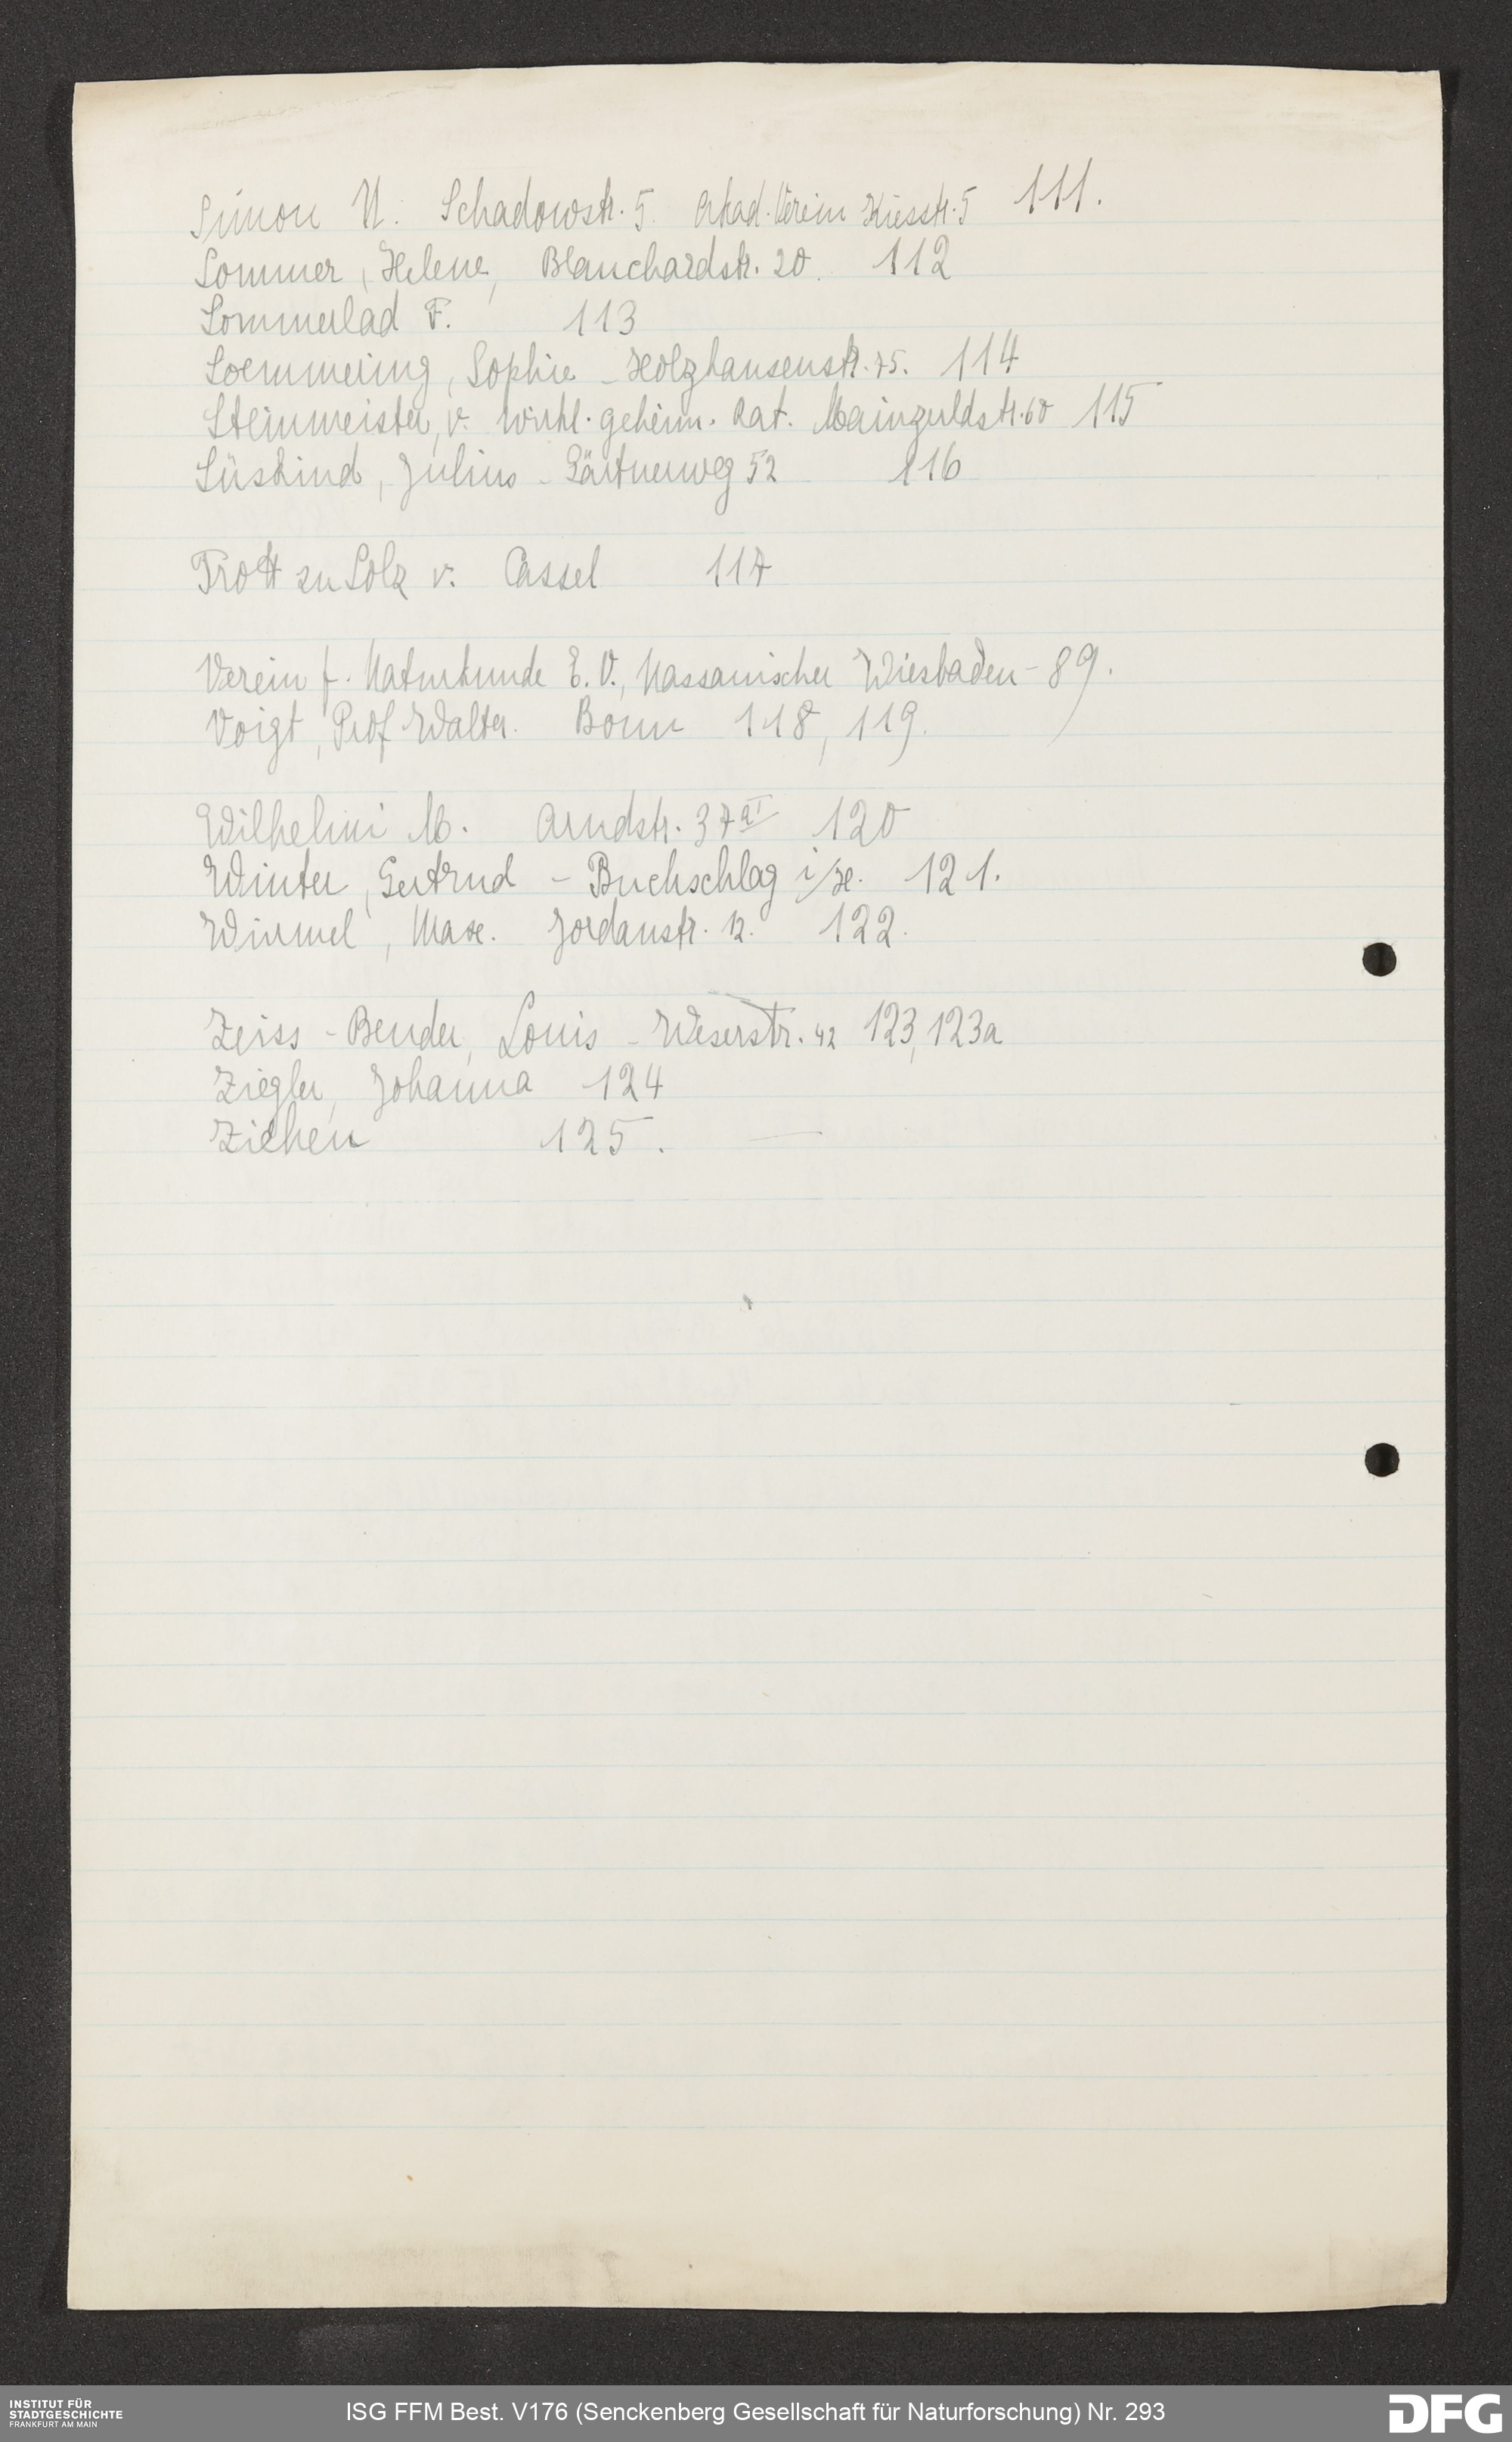 Simon N. Schadowstr. 5. Akad. Verein Kiesstr. 5 111.
Sommer, Helene, Blanchardstr. 20. 112
Sommerlad F. 113
Soemmering, Sophie - Holzhausenstr. 75. 114
Steinmeister, v. Wirkl. geheim. Rat. 115
Süskind, Julius - Gärtnerweg 52 116
Trott zu Solz v. Cassel 117
Verein f. Naturkunde E.V., Nassauischer Wiesbaden - 89.
Voigt, Prof. Walter. Bonn 118, 119.
Wilhelmi M. Arndstr. 37 120
Winter, Gertrud - Buchschlag i/H. 121.
Max. Jordanstr. 12. 122.
Zeiss - Bender, Louis - Weserstr. 42 123, 123a
Ziegler, Johanna 124
Ziehen 125.
INSTITUT FÜR
STADTGESCHICHTE
FRANKFURT AM MAIN
ISG FFM Best. V176 (Senckenberg Gesellschaft für Naturforschung) Nr. 293
DFG